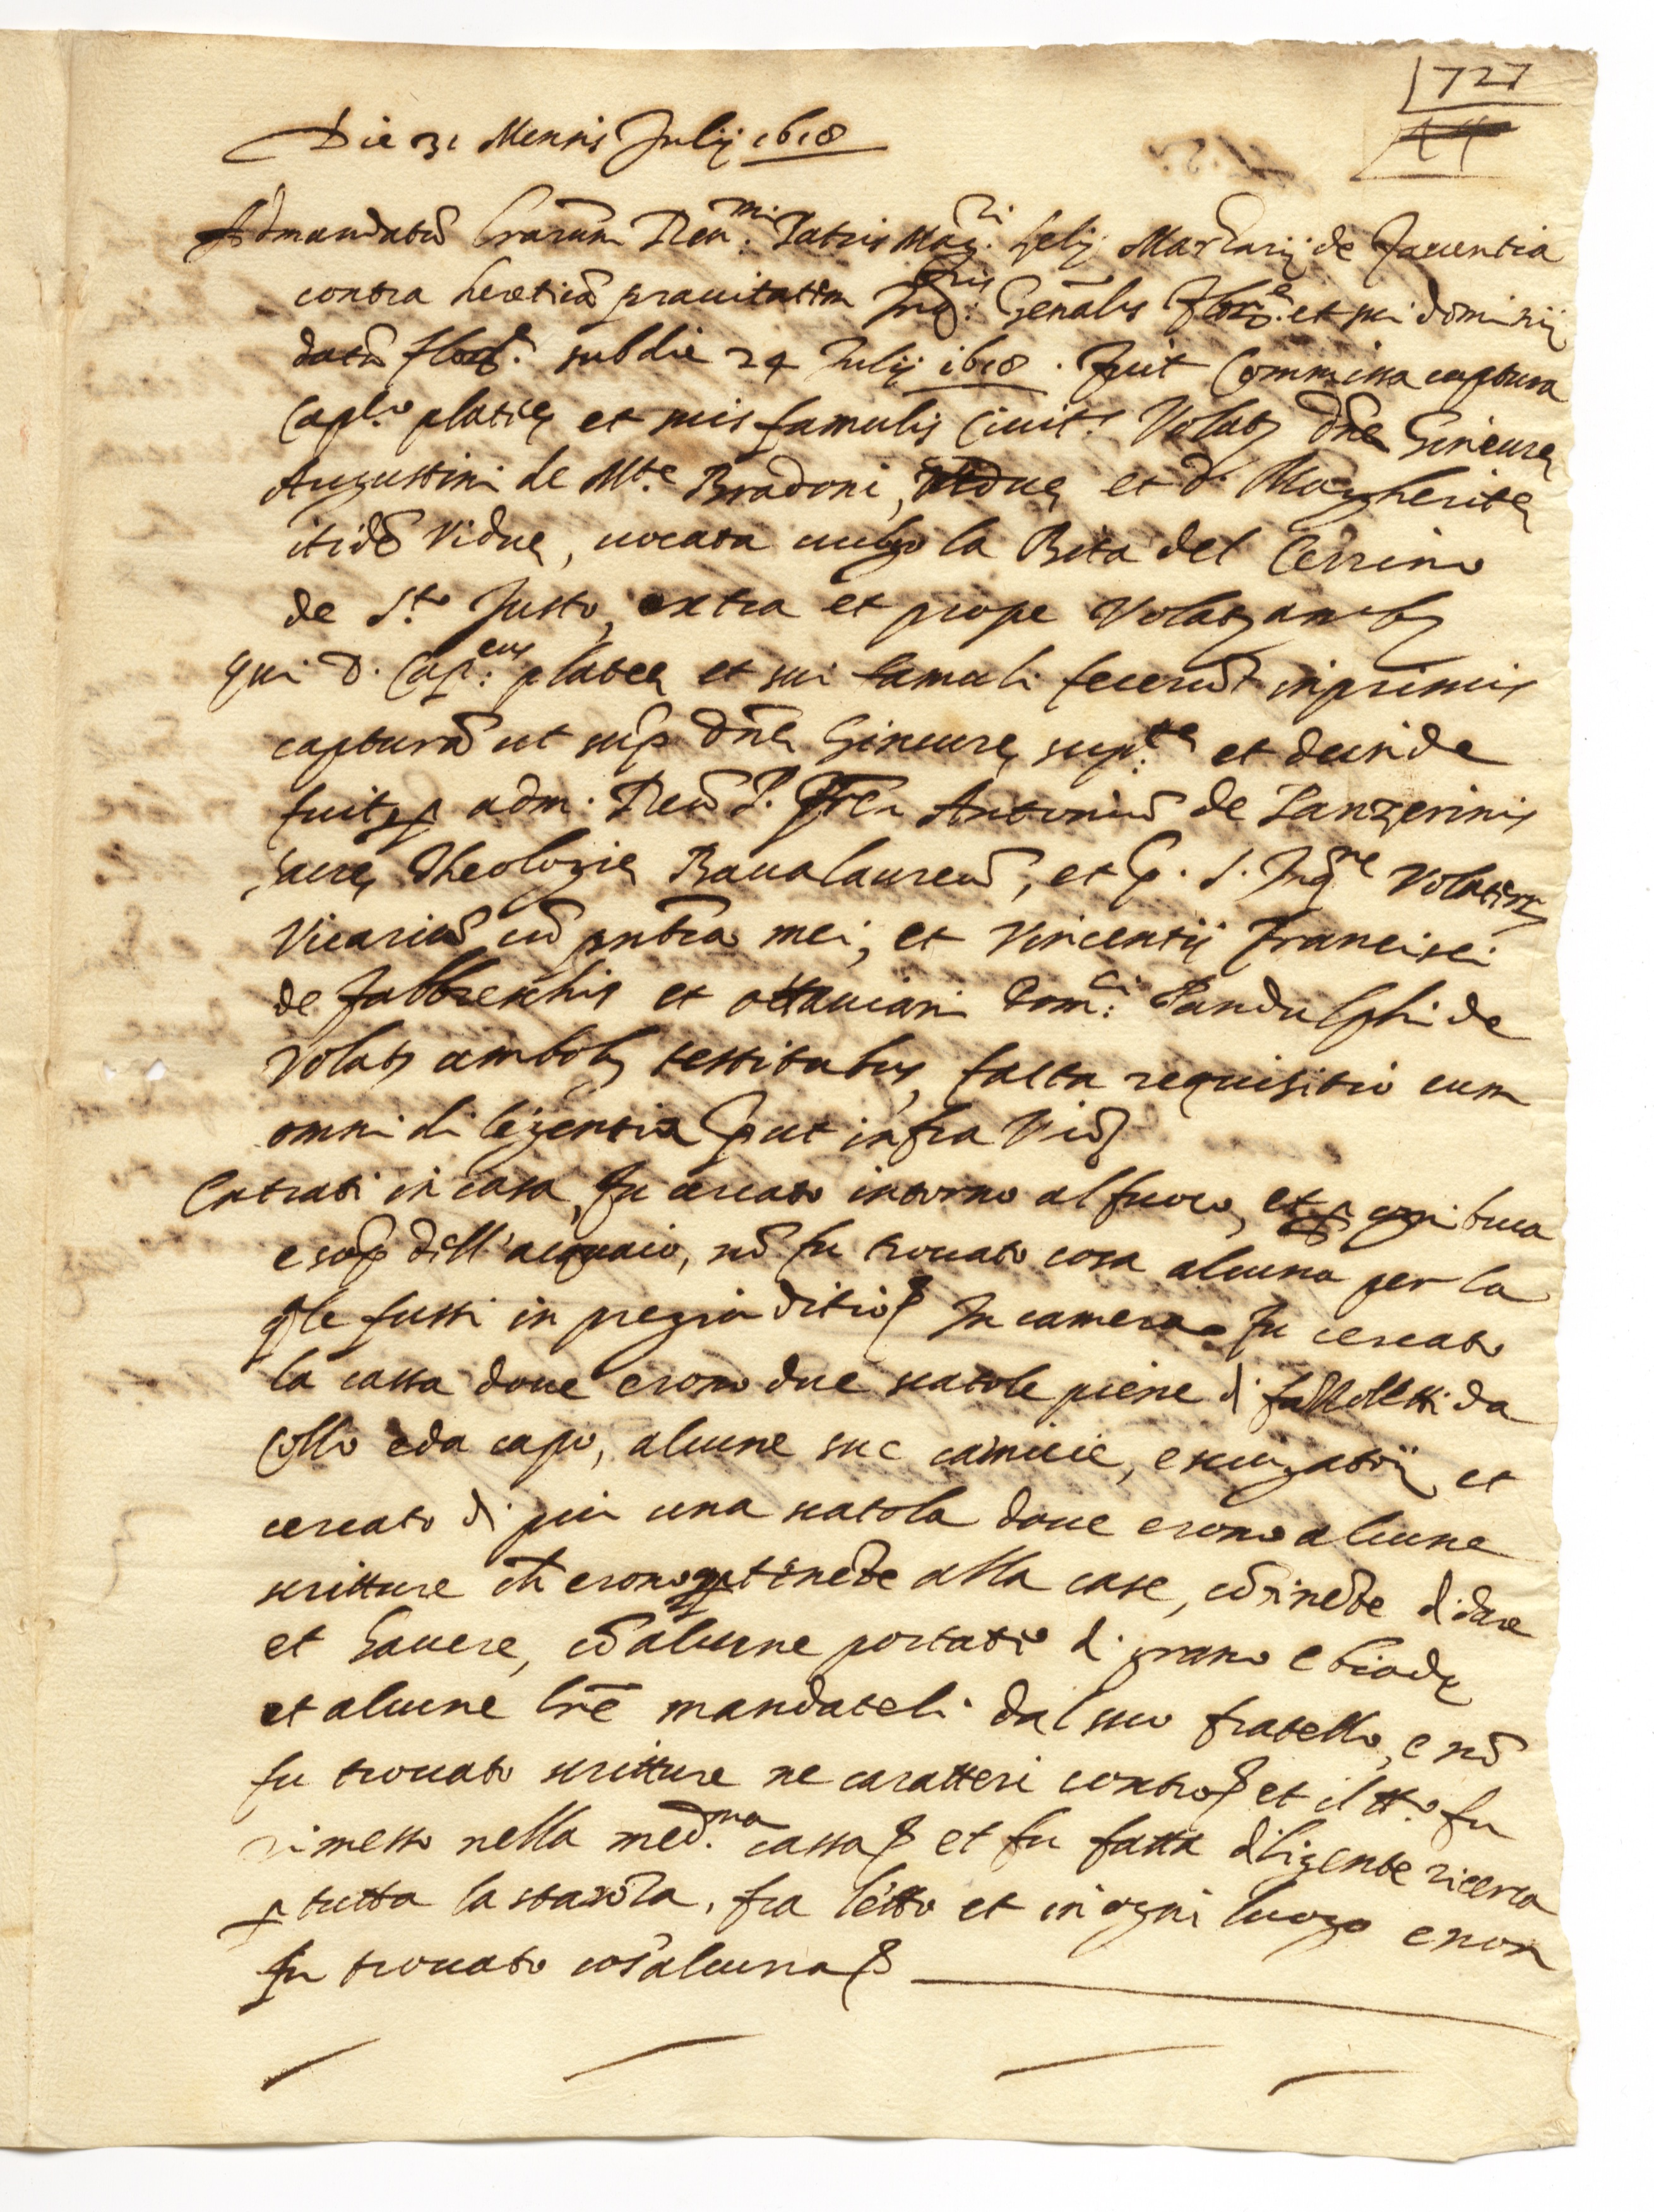 727
Die 31 Mensis Julij 1618
Ad mandatū lrarum Reu.mi Patris Mag.ri Lelij Marzarij de Fauentia
contra hereticā prauitatem Inq.ris Genālis Flor.e et sui dominij
datū flor.e sub die 24 Julij 1618. fuit commissa captura
Cap.o plateę et suis famulis Ciuit.s Volat; Dnę Gineurę
Augustini de Mte Bradoni, Viduę et D. Margheritę
itidē Viduę, uocata uulgo la Bita del Cerrino
de S.to Justo, extra et prope Volat; ambę
qui D. Cap.eus plateę et sui famuli fecerūt inprimis
capturā ut sup Dnę Gineurę sup.tę et deinde
fuit p adm. Reuū P. Frēm Antoniū de Panzerinis
sacrę Theologię Baccalaureū, et p. S. Inq.ne Volaterr
Vicariū cū pntia mei, et Vincentij Francisci
de Fabbreschis et Ottauiani Dom.ci Pandulphi de
Volat; ambob; testibus, facta requisitio cum
omni diligentia put infra Viȝ
Entrati in casa, fu cercato intorno al fuoco, et p ogni buca
e sop dell'acquaio, nō fu trouato cosa alcuna per la
qle fussi in pregiuditio & In camera fu cercato
la cassa doue erono due scatole piene di fazzoletti da
collo e da capo, alcune sue camicie, e sciugatoi, et
cercato di piu una scatola doue erono alcune
scritture ch' erono ptinēte alla case, cōtinēte di dare
et hauere, cō alcune portate di grano e biade
et alcune lrē mandateli dal suo fratello, e nō
fu trouato scritture ne caratteri contro & et il tt.o fu
rimesso nella med.ma cassa & et fu fatta diligente ricerca
p tutta la stanza, fra letto et in ogni luogo e non
fu trouato cos'alcuna &